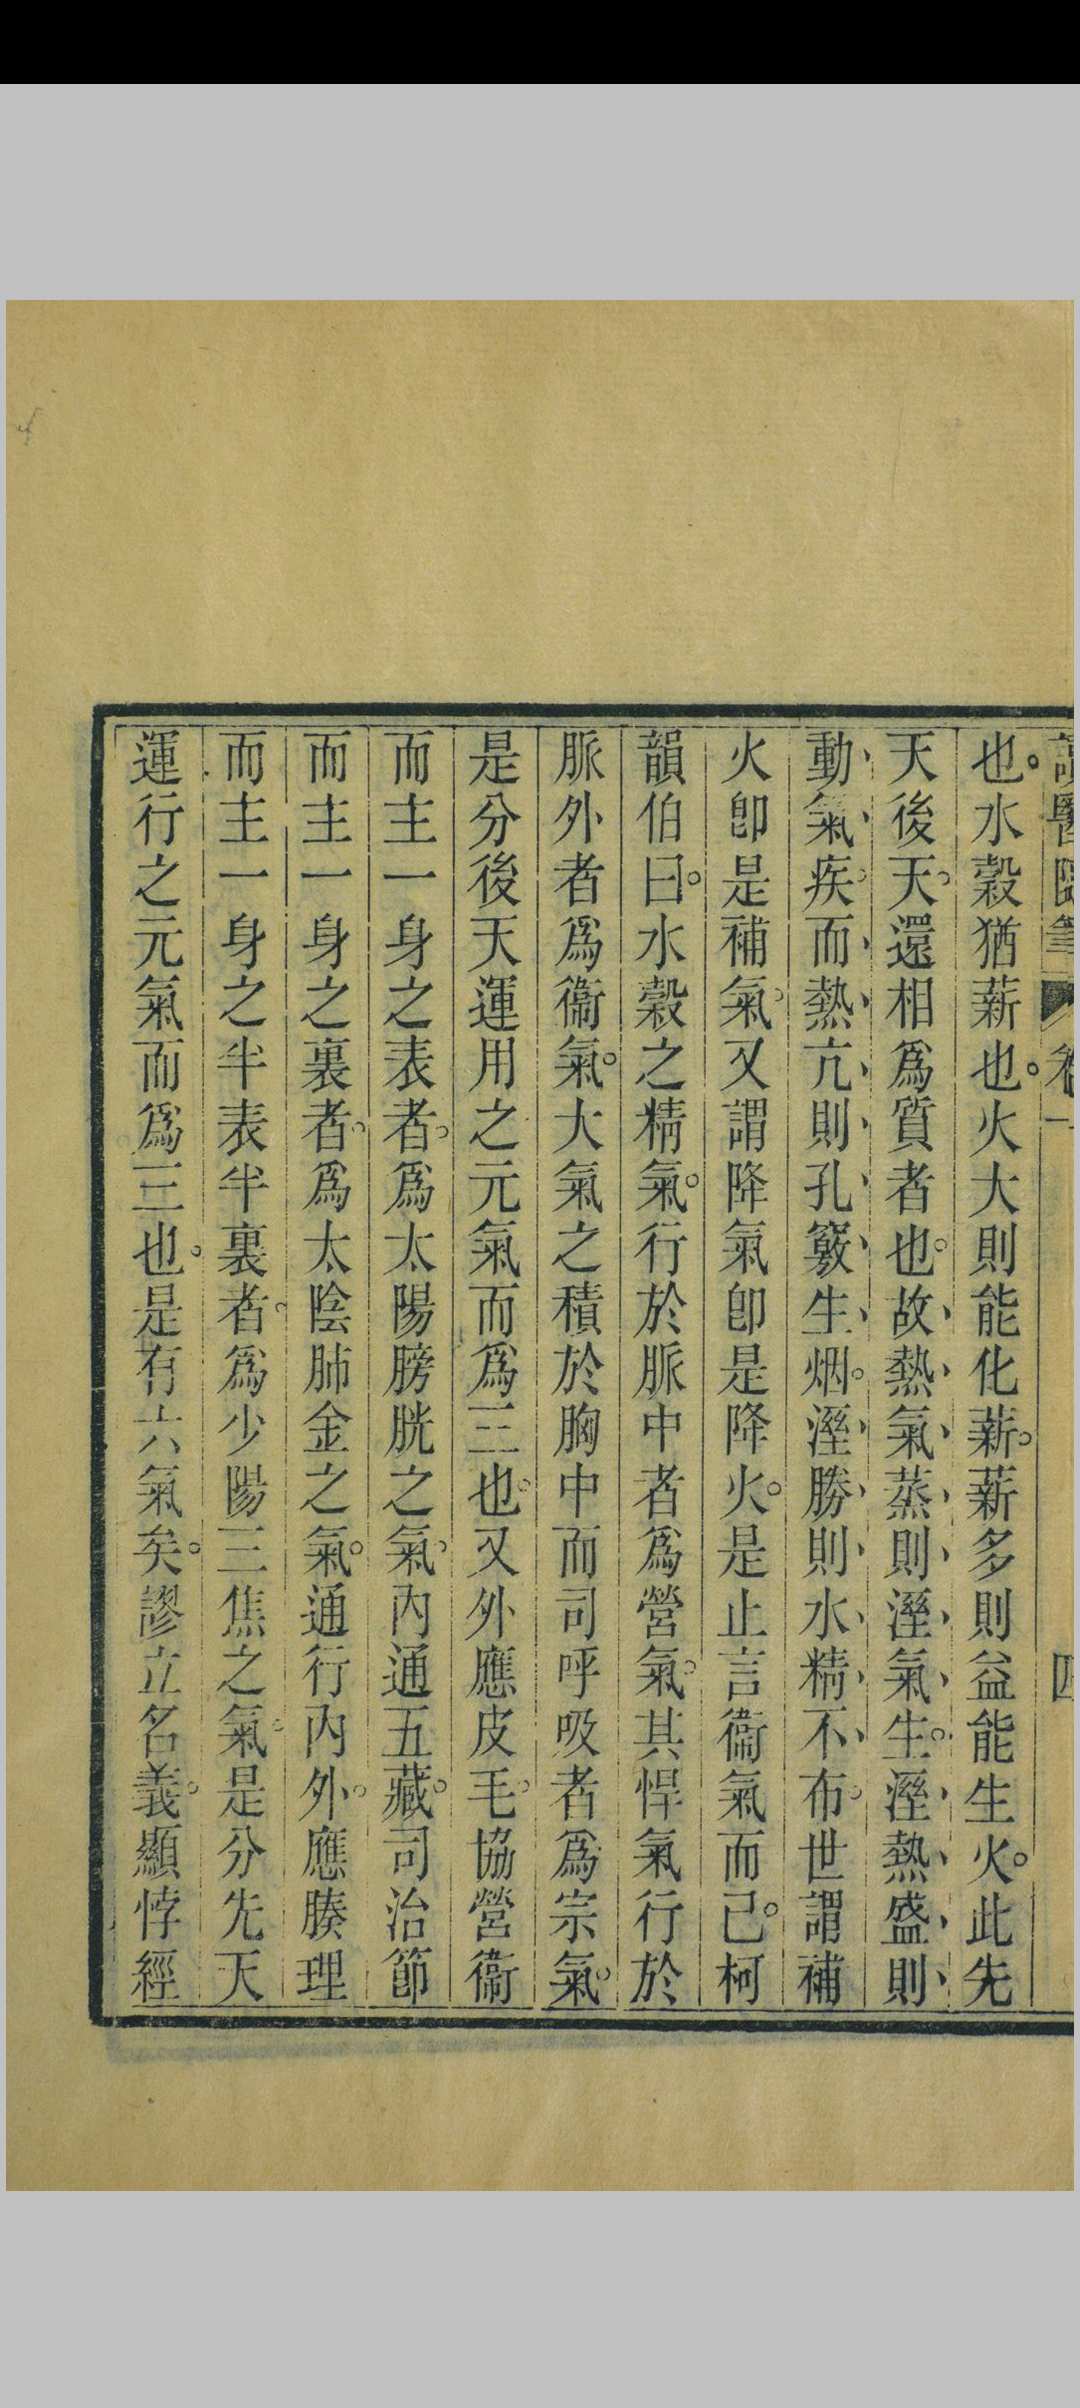 讀醫隨筆 卷一 四
也。水穀猶薪也。火大則能化薪。薪多則益能生火。此先
天後天。還相爲質者也。故熱氣蒸則溼氣生。溼熱盛則
動氣疾而熱亢則孔竅生烟。溼勝則水精不布。世謂補
火卽是補氣。又謂降氣卽是降火。是止言衞氣而已。柯
韻伯曰。水穀之精氣。行於脈中者爲營氣。其悍氣行於
脈外者爲衞氣。大氣之積於胸中而司呼吸者爲宗氣。
是分後天運用之元氣而爲三也。又外應皮毛。協營衞
而主一身之表者。爲太陽膀胱之氣。內通五藏。司治節
而主一身之裏者。爲太陰肺金之氣。通行內外。應腠理
而主一身之半表半裏者。爲少陽三焦之氣。是分先天
運行之元氣而爲三也。是有六氣矣。謬立名義。顯悖經